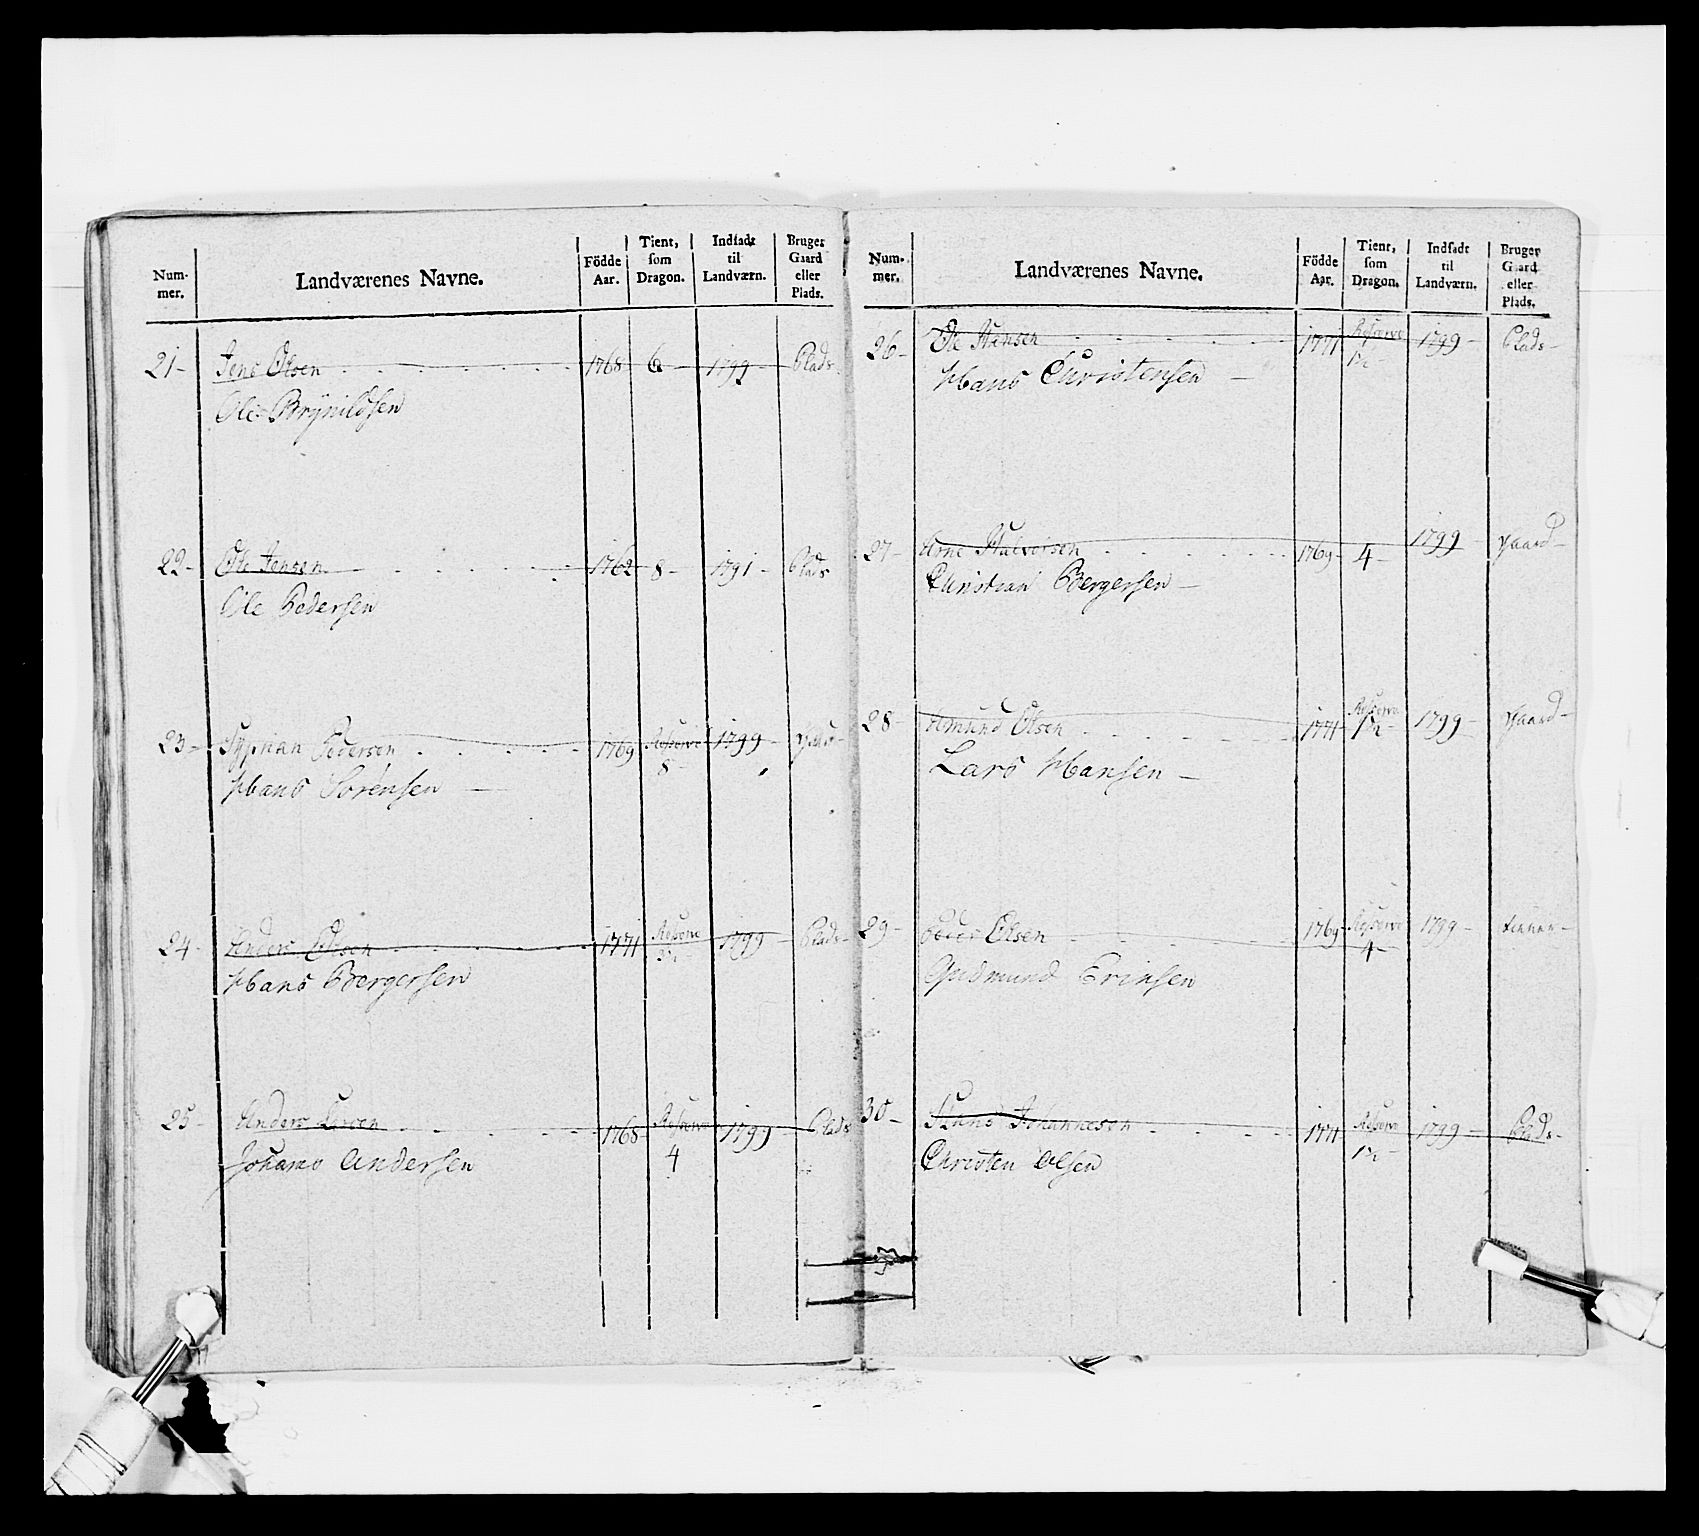 Num-
mer.
Landværenes Navne.
Födde
Aar.
Tient,
som
Dragon.
Indsadt
til
Landværn.
Bruger
Gaard
eller
Plads.
21- Jens Olsen 1768 6- 1799- Plads
Ole Brynildsen
22- Ole Jensen 1762 8- 1791- Plads
Ole Pedersen
23- Pedersen 1769 Reserve 1799-
8-
Hans Sörensen -
24- Anders Olsen 1771 Reserve 1799- Plads-
Hans Bergersen
25- Anders Larsen 1768 Reserve 1799- Plads
4
Johans Andersen
Num-
mer.
Landværenes Navne.
Födde
Aar.
Tient,
som
Dragon.
Indsadt
til
Landværn.
Bruger
Gaard
eller
Plads.
26- Ole Hansen 1771 Reserve 1799- Plads-
1½
Hans Christensen -
27- Arne Halvorsen 1769- 4- 1799- Gaard-
Christian Bergersen -
28- Amund Olsen 1771 Reserve 1799- Gaard-
1½-
Lars Hansen -
29- Peder Olsen 1769 Reserve 1799-
4-
Gudmund
30- Hans Johannesen 1771 Reserve 1799- Plads-
1½-
Christen Olsen